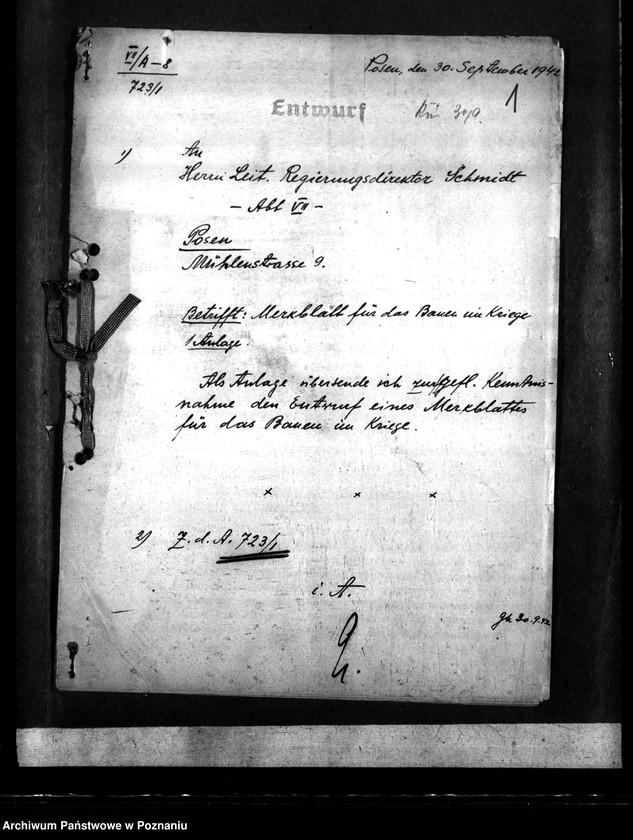 VII/A-8
723/1
Posen, den 30. September 1942
Entwurf
30/9
1
1) An
Herrn Leit. Regierungsdirektor Schmidt
- Abt VII -
Posen
Mühlenstrasse 9.
Betrifft: Merkblatt für das Bauen im Kriege
1 Anlage.
Als Anlage übersende ich zur gefl. Kenntnis-
nahme den Entwurf eines Merkblattes
für das Bauen im Kriege.
x x x
2) Z. d. A. 723/1
i. A.
30.9.42
Archiwum Państwowe w Poznaniu